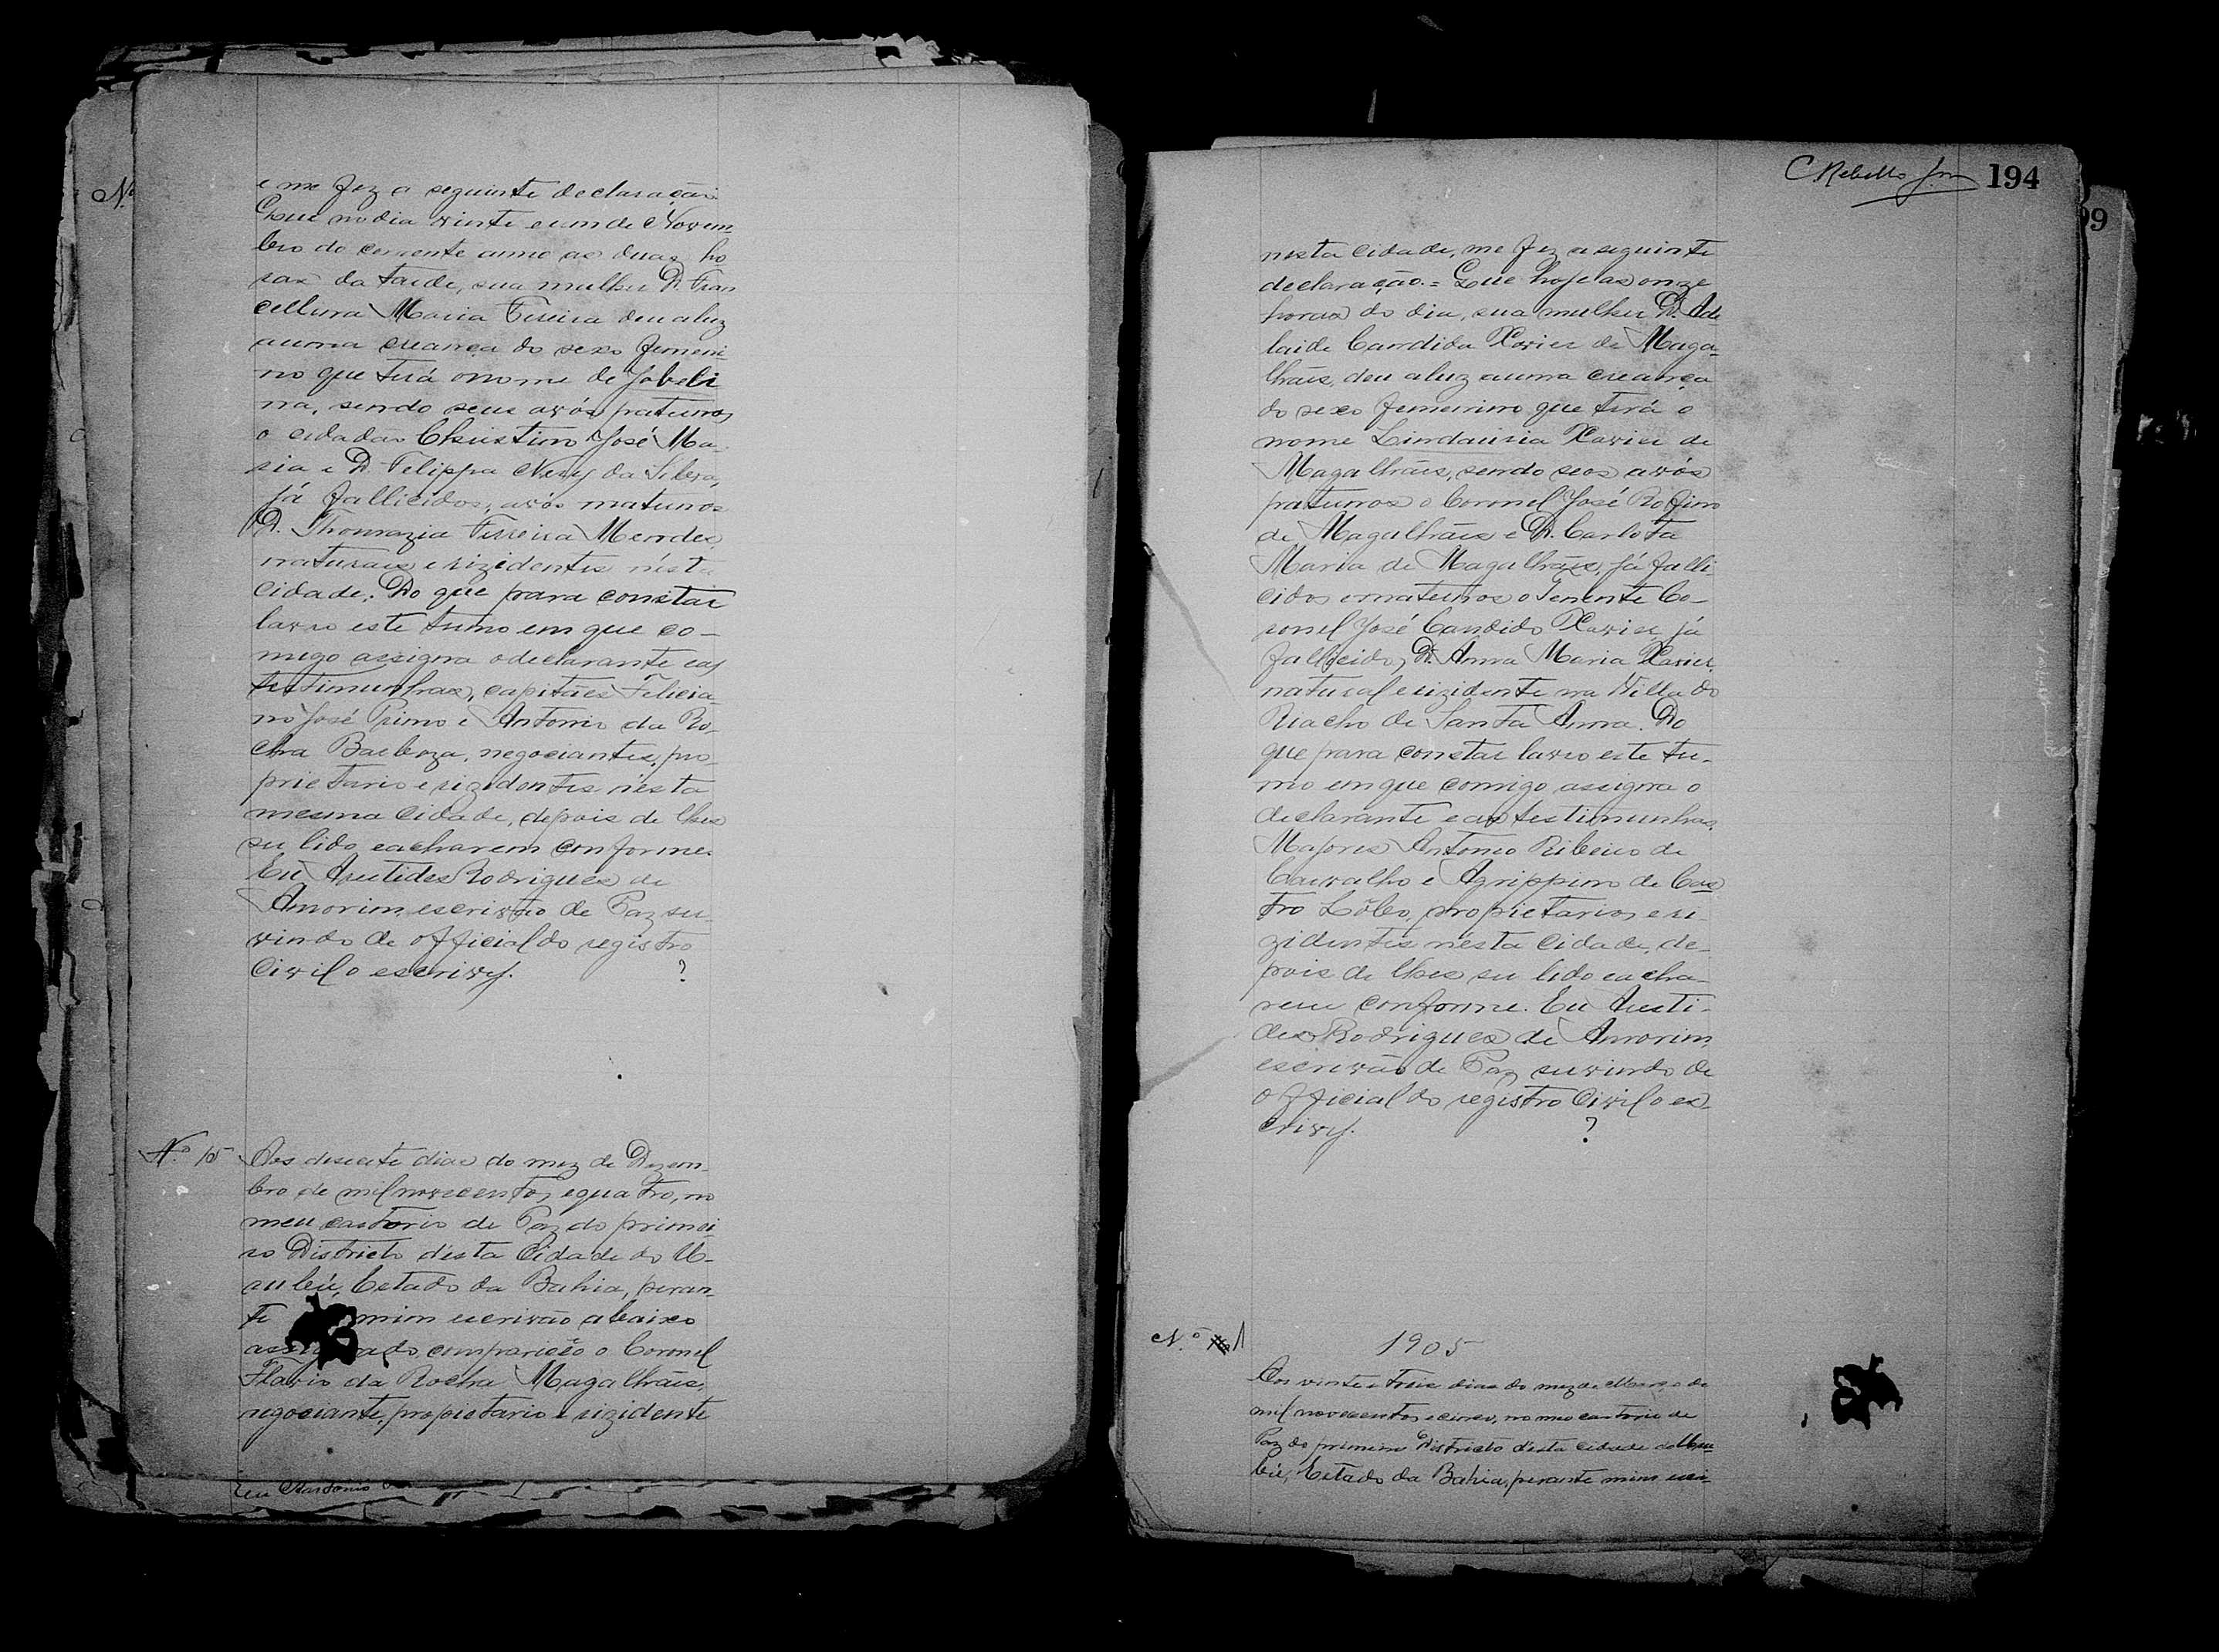 N.
e me fez a seguinte declaração.
Que no dia vinte e um de Novem-
bro do corrente anno as duas ho
ras da tarde, sua mulher D. Fran
cellina Maria Ferreira deu a luz
a uma creança do sexo femeni-
no que terá o nome de Joveli
na, sendo seus avós paternos
o cidadão Christino José Ma-
ria e D. Felippa Nery da Silva,
já fallicidos, avós maternos
D. Thomazia Ferreira Mendes
naturais e rizidentes nésta
cidade. Do que para constar
lavro este termo em que co-
migo assigna o declarante e as
testimunhas, capitães Felicia-
no José Primo e Antonio da Ro-
cha Barboza, negociantes, pro-
prietario e rizidentes nésta
mesma cidade, depois de lhes
ser lido e acharem conforme.
Eu Aristides Rodrigues de
Amorim, escrivão de Paz ser-
vindo de official do registro
Civil o escrivy. ?
N.º 15 Aos deserte dias do mez de Dezem-
bro de mil novecentos e quatro, no
meu cartorio de Paz do primei-
ro Districto désta Cidade do U-
rubú, Estado da Bahia, peran-
te mim escrivão abaixo
assignado, compariceo o Coronel
Flavio da Rocha Magalhães,
negociante, proprietario e rizidente
Eu Antonio
C Rebello Jor 194
99
nésta cidade, me fez a seguinte
declaração. = Que hoje as onze
horas do dia, sua mulher D. Ade
laide Candida Xavier de Maga-
lhães, deu a luz a uma creança
do sexo femenino que terá o
nome Lindauria Xavier de
Magalhães, sendo seos avós
paternos o Coronel José Rofino
de Magalhães e D. Carlota
Maria de Magalhães, já falli-
cidos e maternos o Tenente Co-
ronel José Candido Xavier, já
fallicido, D. Anna Maria Xavier,
natural e rizidente na Villa do
Riacho de Santa Anna. Do
que para constar lavro este ter-
mo em que comigo assigna o
declarante e as testimunhas,
Majores Antonio Ribeiro de
Carvalho e Agrippino de Cas
tro Lôbo, proprietarios e ri-
zidentes nésta Cidade, de-
pois de lhes ser lido e acha-
rem conforme. Eu Aristi-
des Rodrigues de Amorim,
escrivão de Paz servindo de
official do registro Civil o es-
crivy. ?
N.º 1 1905
Aos vinte e treis dias do mez de Março de
mil novecentos e cinco, no meu cartorio de
Paz do primeiro Districto désta cidade do Uru-
bú, Estado da Bahia, perante mim escri-